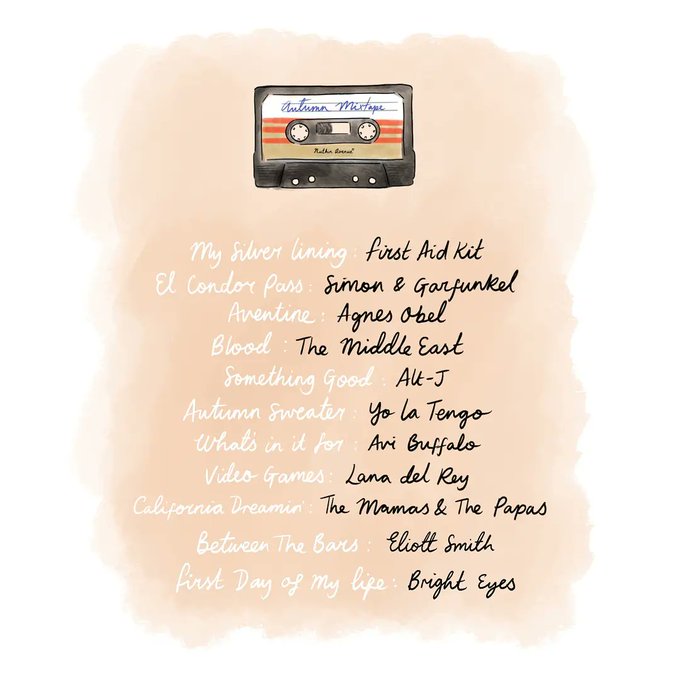 Autumn Mixtape
My Silver Lining : First Aid Kit
El Condor Pass : Simon & Garfunkel
Aventine : Agnes Obel
Blood : The Middle East
Something Good : Alt-J
Autumn Sweater : Yo La Tengo
What's in it for : Avi Buffalo
Video Games : Lana del Rey
California Dreamin' : The Mamas & The Papas
Between The Bars : Eliott Smith
First Day of My life : Bright Eyes